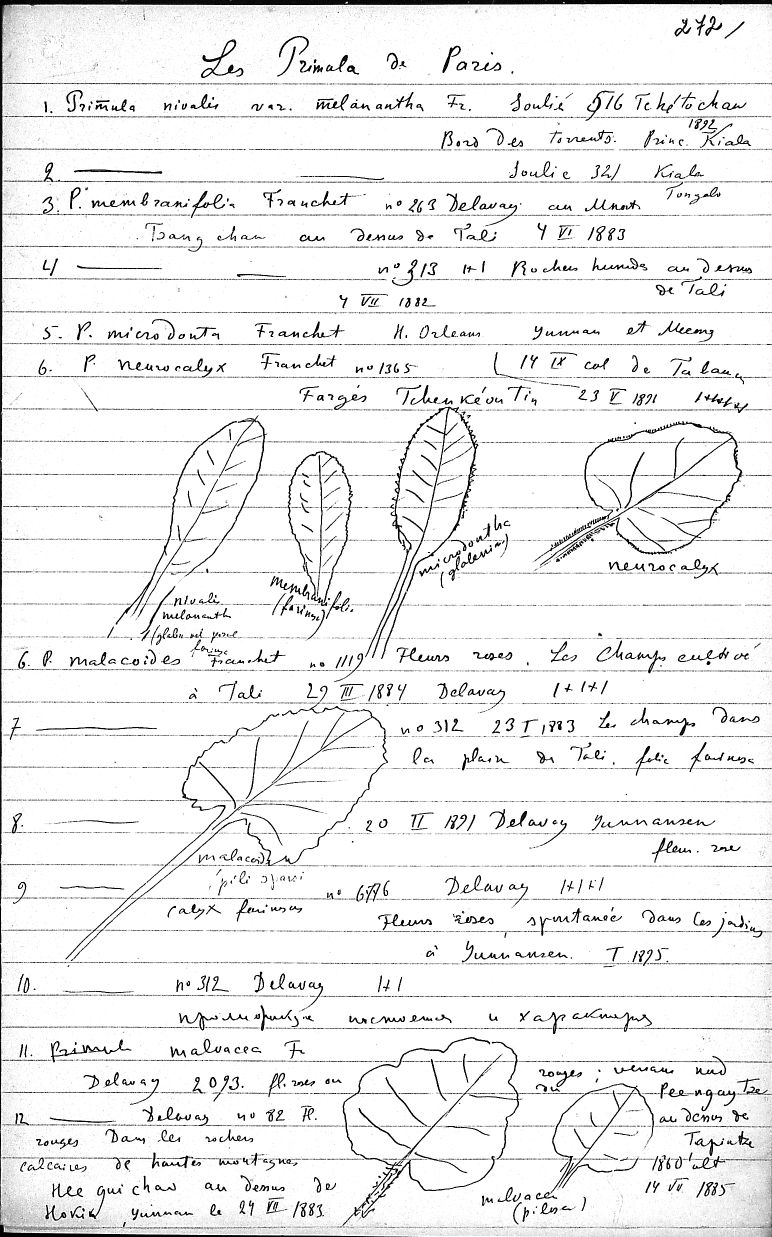 272/
Les Primula de Paris.
1. Primula nivalis var. melanantha Fr. Soulié 516 Tchétochan
Bord des torrents. Princ. Kiala
1892
2. Soulie 321 Kiala
Tongolo
3. P. membranifolia Franchet no 263 Delavay au Mnont
Tsang chan au dessus de Tali 4 VI 1883
4/ no 313 1+1 Rochers humides au dessus
de Tali
4 VII 1882
5. P. microdonta Franchet H. Orleans Yunnan et
6. P. neurocalyx Franchet no 1365 14 IX col de
Fargès Tchenkéoutin 23 V 1891
nivalis
melananth
membranifolia
(farinosa)
microdontha
neurocalyx
6. P. malacoides Franchet no 1119 Fleurs roses. Les Champs cultivé
à Tali 29 III 1884 Delavay 1+1+1
7 no 312 23 I 1883 Les champs dans
la plain de Tali. folia farinosa
8. 20 II 1891 Delavay Yunnansen
fleur. rose
malacoides
pili sparsi
9 no Delavay 1+1+1
calyx farinosus
Fleurs roses, spontanée dans les jardins
à Yunnansen. I 1895.
10. no 312 Delavay 1+1
и характера
11. Primula malvacea Fr
Delavay 2093. fl. roses ou rouges; versans nud
du Peengay Tze
au dessus de
Tapintze
1860' alt
14 VII 1885
12 Delavay no 82 Fl.
rouges Dans les rochers
calcaires de hautes montagnes
Hee gui chao au dessus de
Hokin, Yunnan le 24 VII 1883
malvacea
(pilosa)